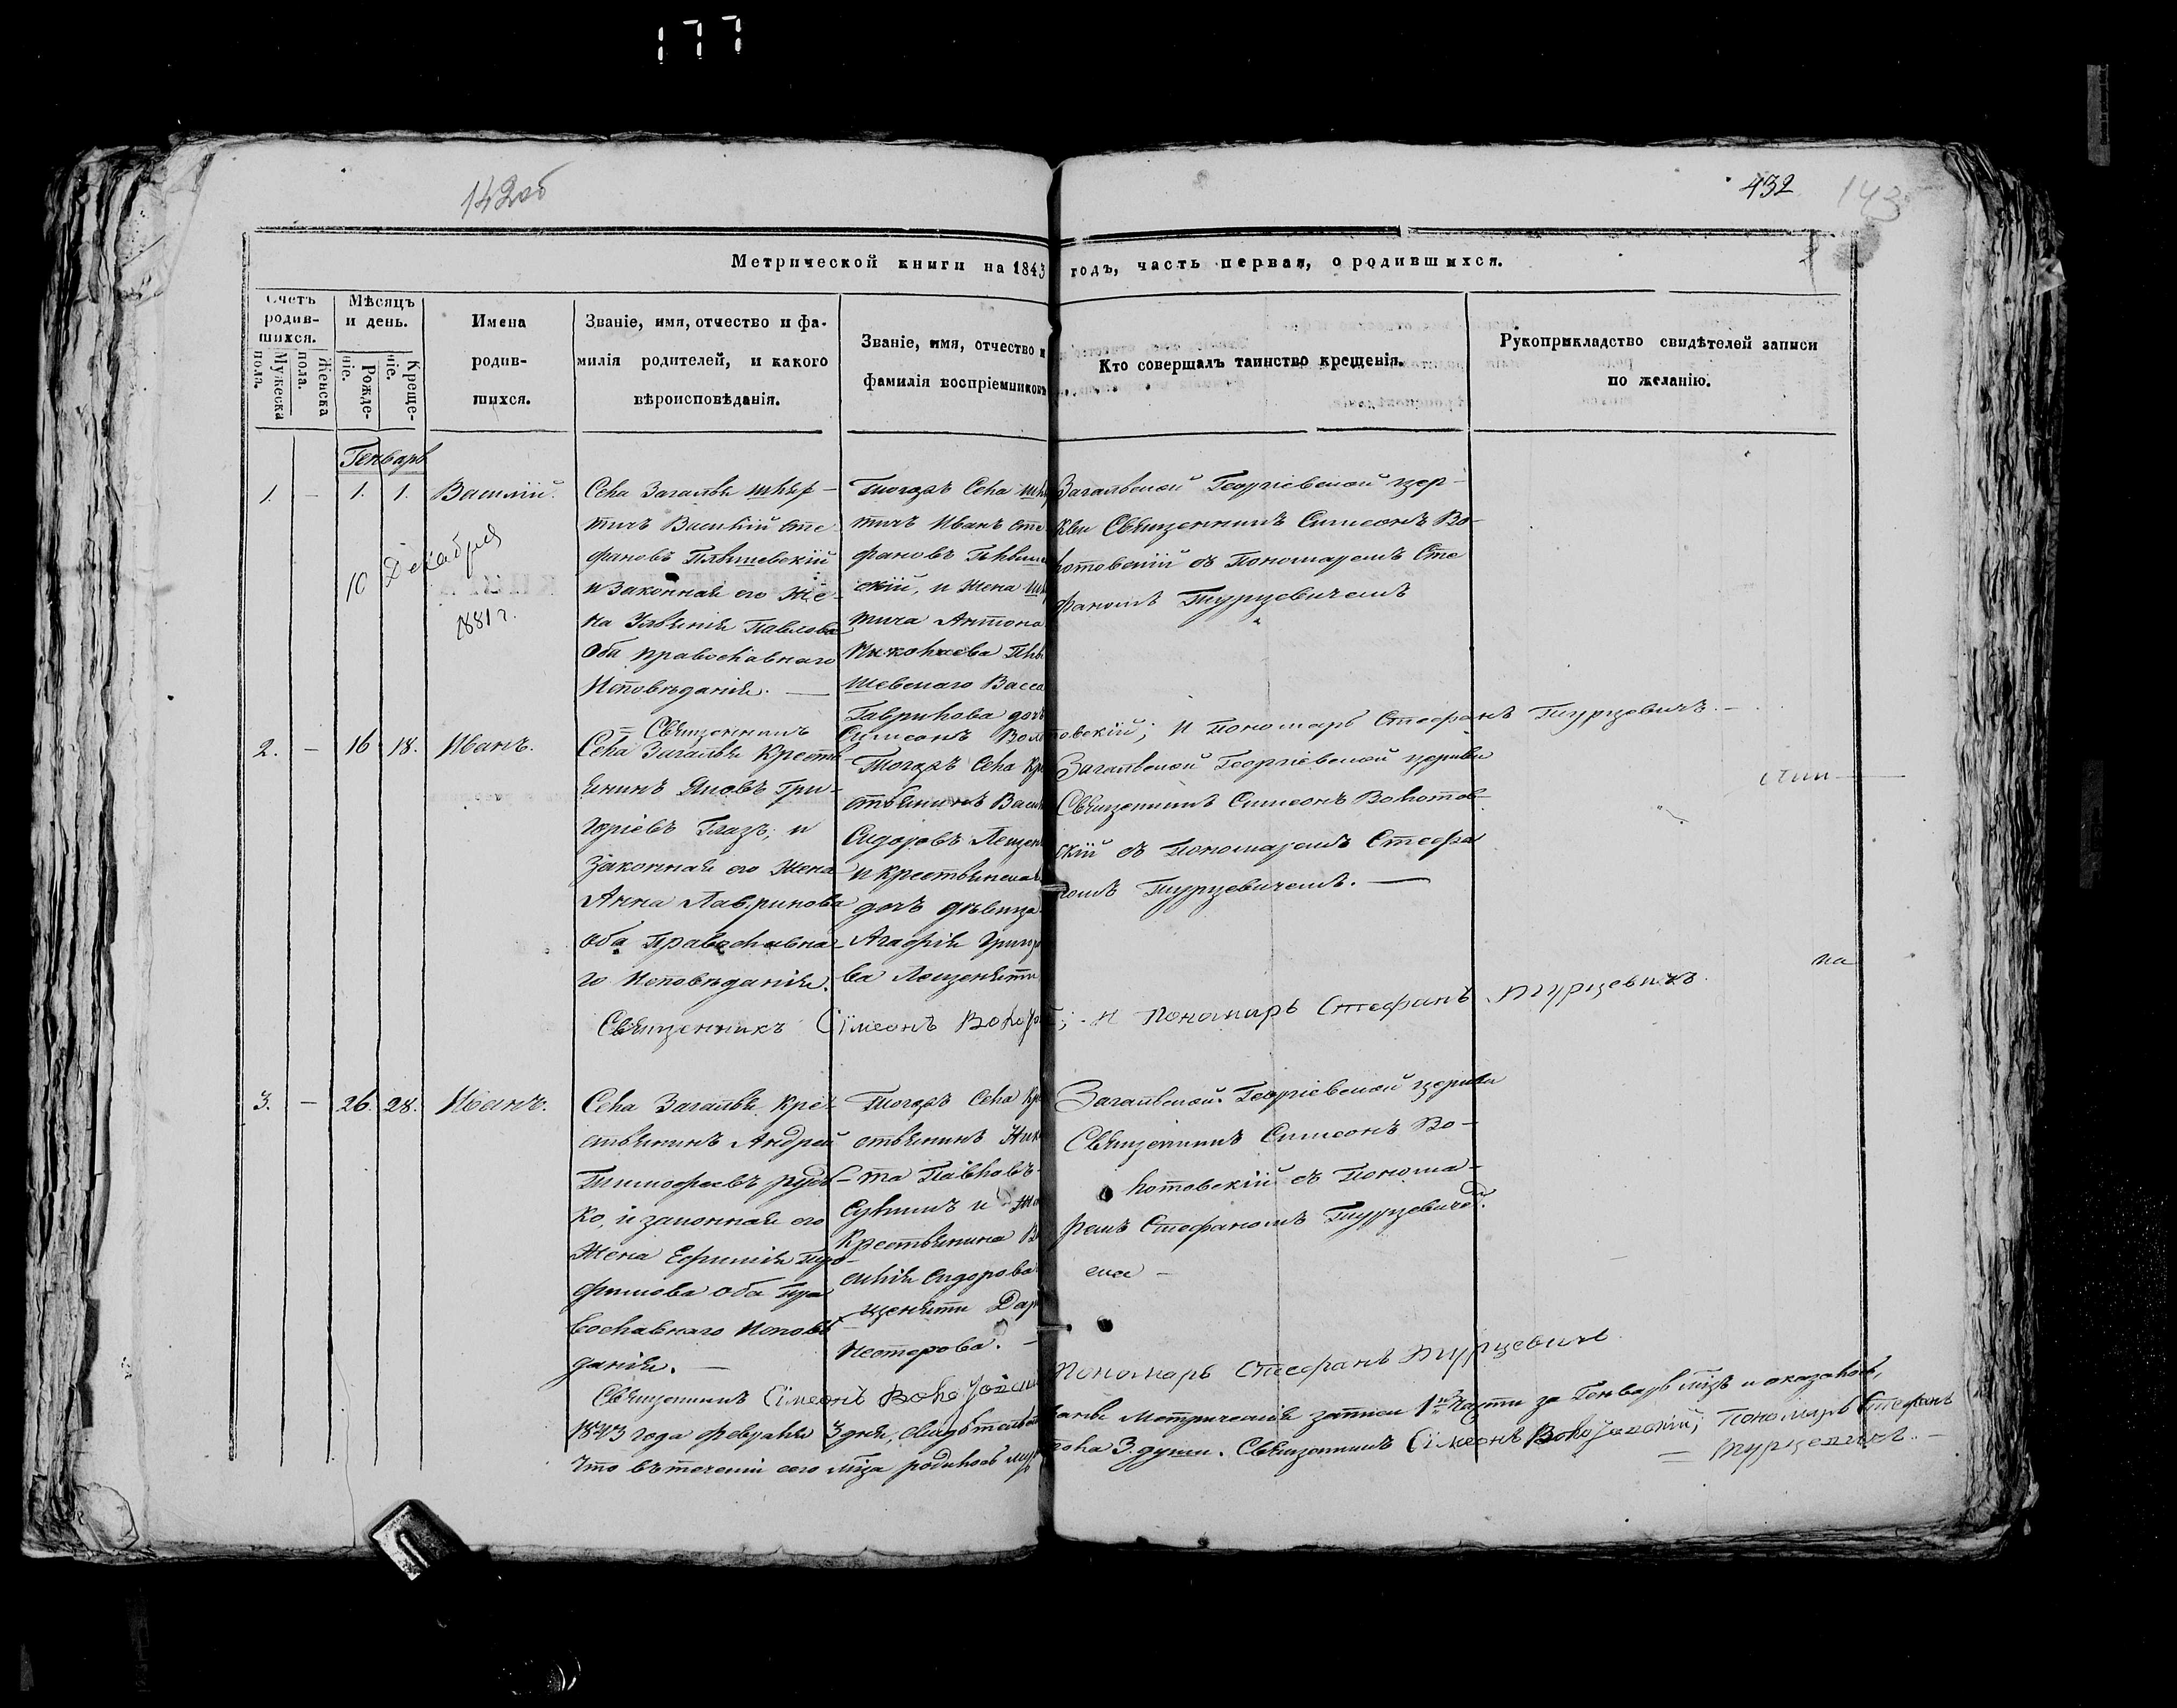 177
142об
432
143
Метрической книги на 1843 годъ, часть первая, о родившихся.
Счетъ родившихся.
Мужеска пола.
Женска пола.
Мѣсяцъ и день.
Рожденіе.
Крещеніе.
Имена
родив-
шихся.
Званіе, имя, отчество и фа-
милія родителей, и какого
вѣроисповѣданія.
Званіе, имя, отчество и
фамилія воспріемниковъ
Кто совершалъ таинство крещенія.
Рукоприкладство свидѣтелей записи
по желанію.
Генварь
1. — 1. 1. Василий.
10 Декабря
1881 г.
Села Загалья шлях-
тичъ Василій Сте-
фановъ
и законная его же-
на Павлова
оба православнаго
исповѣданія. —
Тогожъ села
тичъ Иванъ Сте-
фановъ
скій, и жена
тича Антона
Николаева
шевскаго Васса
Гаврилова дочь
Загальской Георгіевской цер-
кви Священникъ Симеонъ Во-
лотовскій съ Пономаремъ Сте
фаномъ Турцевичемъ
Священникъ Симеонъ Волотовскій; и Пономарь Стефанъ Турцевичъ. —
2. — 16 18. Иванъ.
Села Загалья Кресть-
янинъ Яковъ Гри-
горіевъ Глазъ; и
законная его жена
Анна Лавринова
оба Православна-
го исповѣданія.
Тогожъ села Кре
стьянинъ Васил
Сидоровъ Лещен
и крестьянская
дочь дѣвица
Агафія Григо
ва
Загальской Георгіевской церкви
Священникъ Симеонъ Волотов-
скій съ Пономаремъ Стефа
номъ Турцевичемъ. —
Священникъ Сімеонъ ; и Пономарь Стефанъ Турцевичъ.
3. — 26. 28. Иванъ.
Села Загалья Кре-
стьянинъ Андрей
Тимофеевъ
ко, и законная его
жена Ефимія Тро-
фимова оба Пра
вославнаго исповѣ
данія. —
Тогожъ села Кр
стьянинъ Ники
та Павловъ
и же
Крестьянина
Сидорова
Дар
Нестерова. —
Загальской Георгіевской церкви
Священникъ Симеонъ Во-
лотовскій съ Понома-
ремъ Стефаномъ Турцевиче
мъ —
Священникъ Сімеонъ Пономарь Стефанъ Турцевичъ
1843 года февраля 3 дня, Метрической записи 1й части за Генварь мцъ и оказалось,
что въ теченіи сего мца родилось пола 3 души. Священникъ Сімеонъ Пономарь Стефанъ
Турцевичъ. —